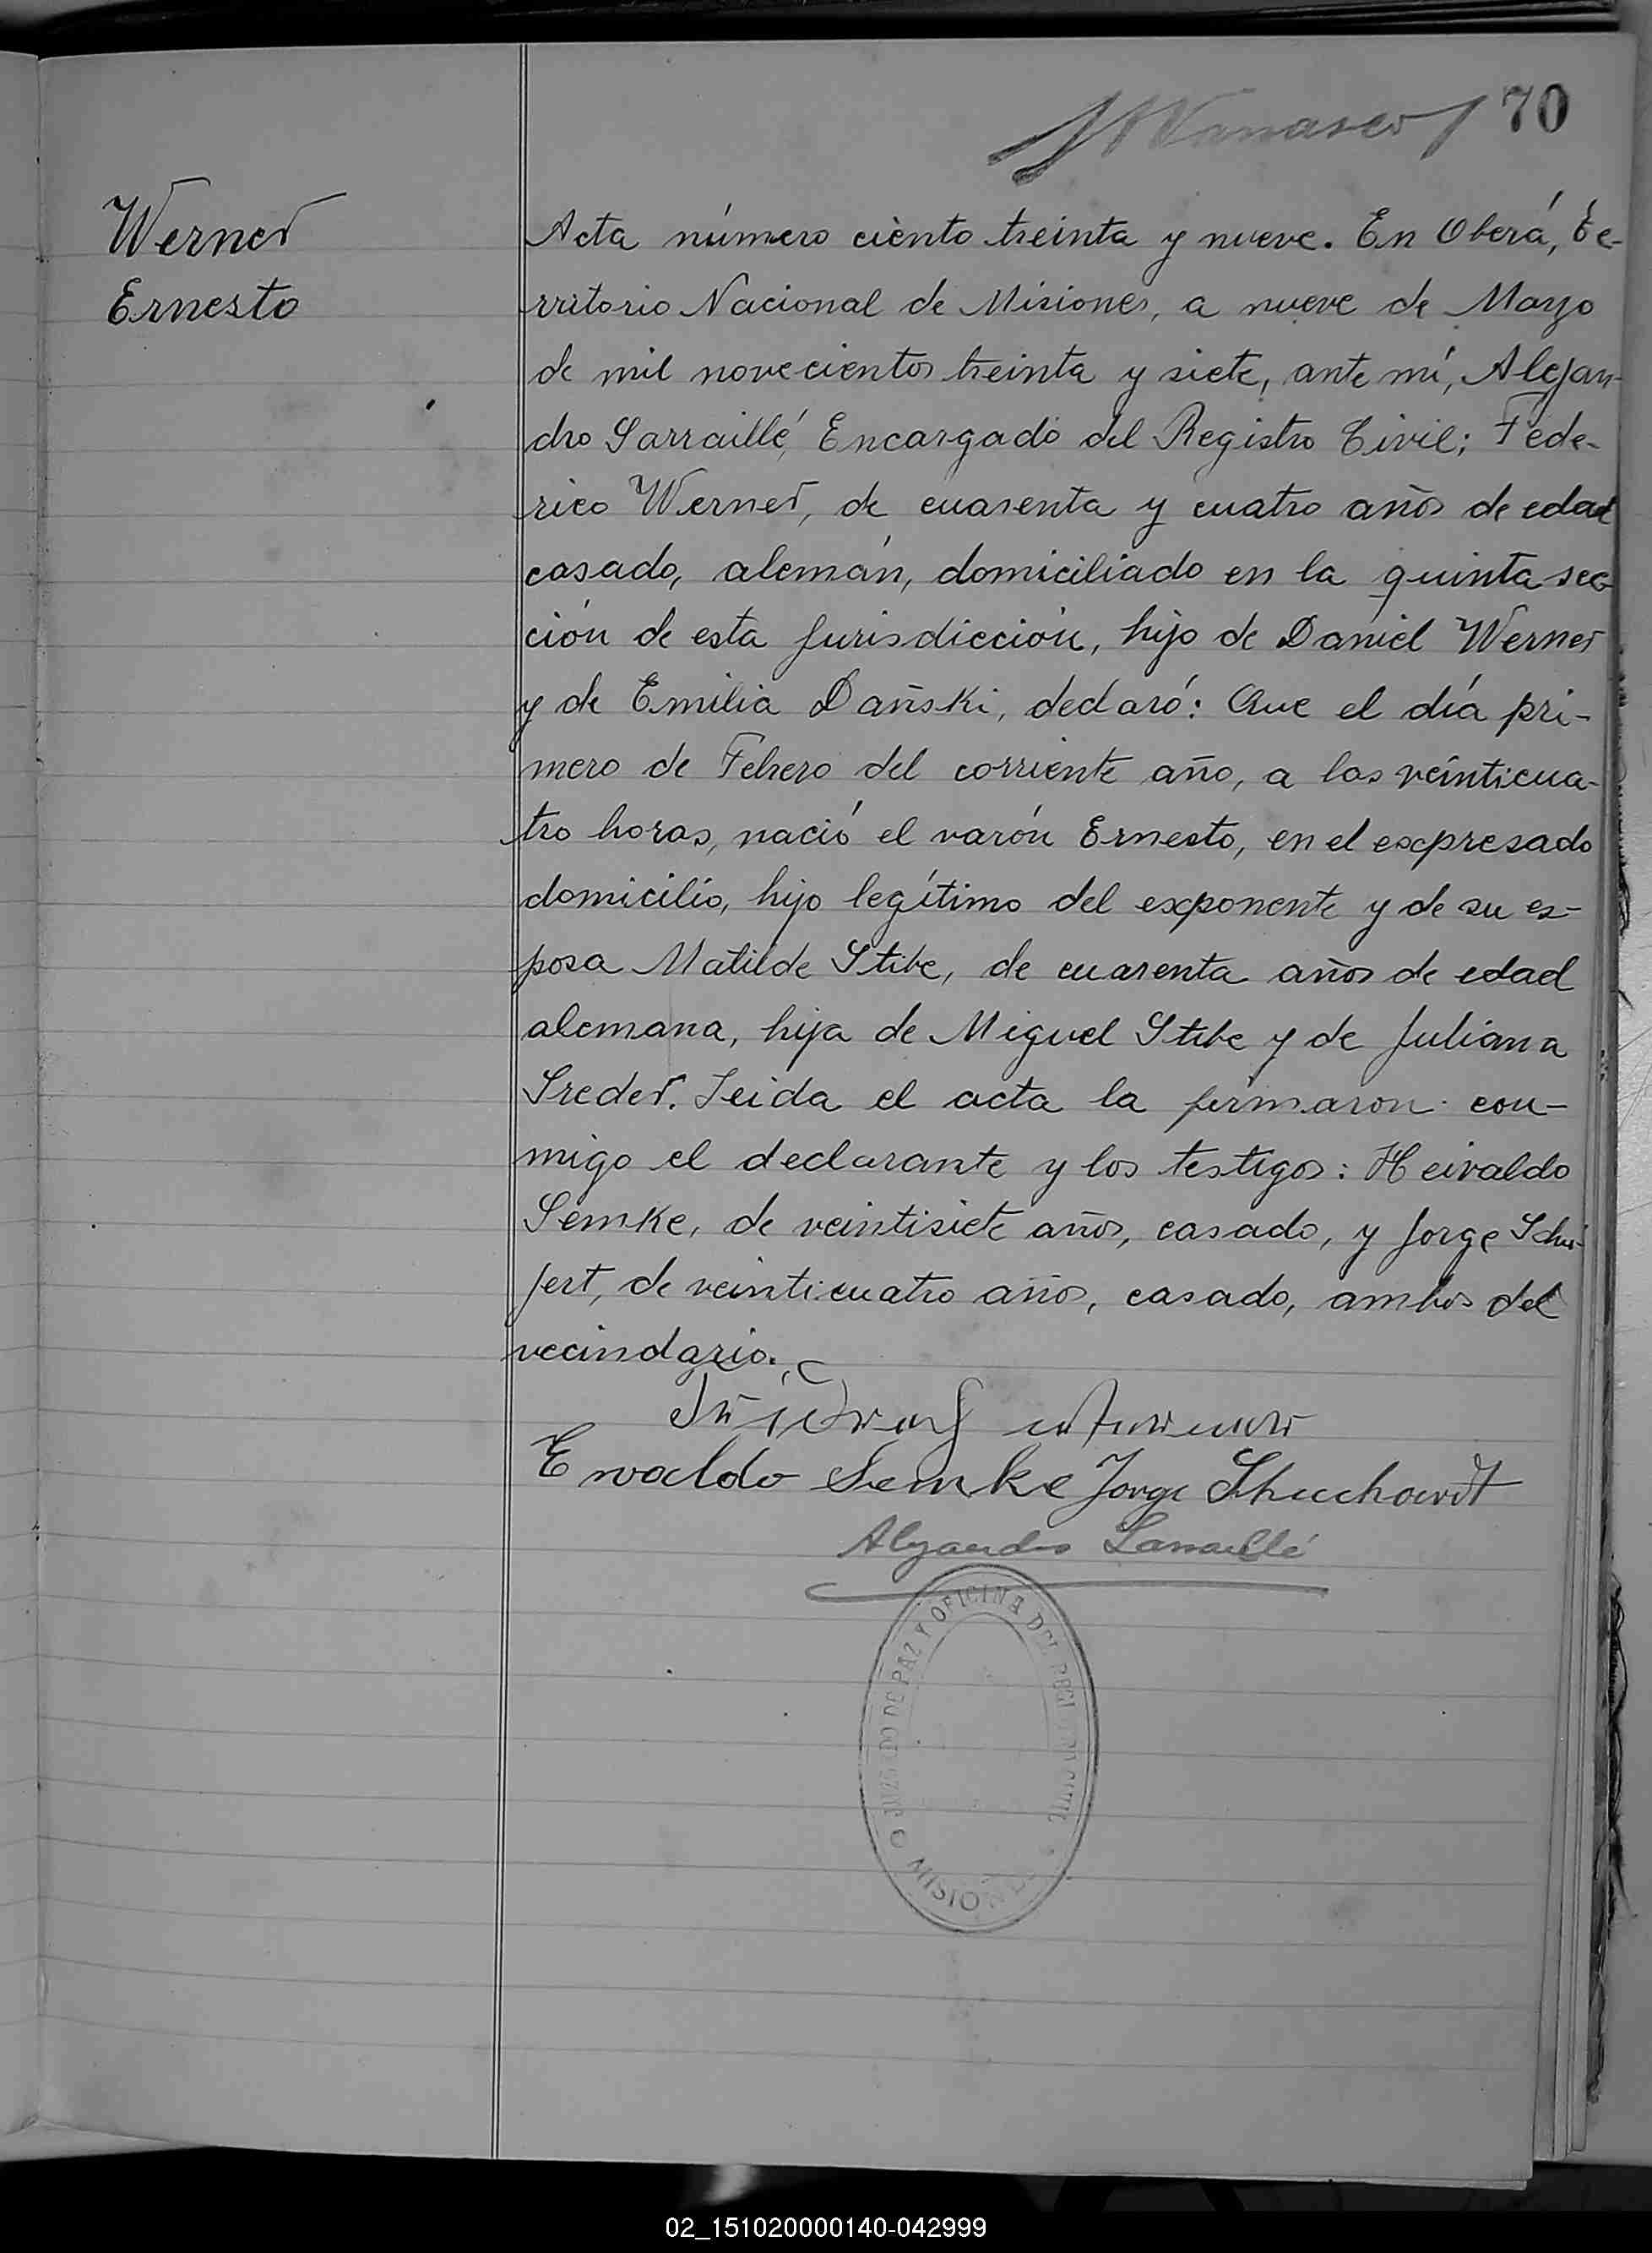 70
Werner
Ernesto
Acta número ciento treinta y nueve. En Oberá, Te-
rritorio Nacional de Misiones, a nueve de Marzo
de mil novecientos treinta y siete, ante mí, Alejan-
dro Larraillé, Encargado del Registro Civil; Fede-
rico Werner, de cuarenta y cuatro años de edad
casado, alemán, domiciliado en la quinta sec-
ción de esta jurisdicción, hijo de Daniel Werner
y de Emilia Dañski, declaró: Que el día pri-
mero de Febrero del corriente año, a las veinticua-
tro horas, nació el varón Ernesto, en el expresado
domicilio, hijo legítimo del exponente y de su es-
posa Matilde Stibe, de cuarenta años de edad
alemana, hija de Miguel Stibe y de Juliana
Sreder. Leida el acta la firmaron con-
migo el declarante y los testigos: Heivaldo
Semke, de veintisiete años, casado, y Jorge
fert, de veinticuatro años, casado, ambos del
vecindario.
Evaldo Semke Jorge Shuchardt
Alejandro Larraillé
JUZGADO DE PAZ Y OFICINA DEL REGISTRO CIVIL
MISIONES
02_151020000140-042999